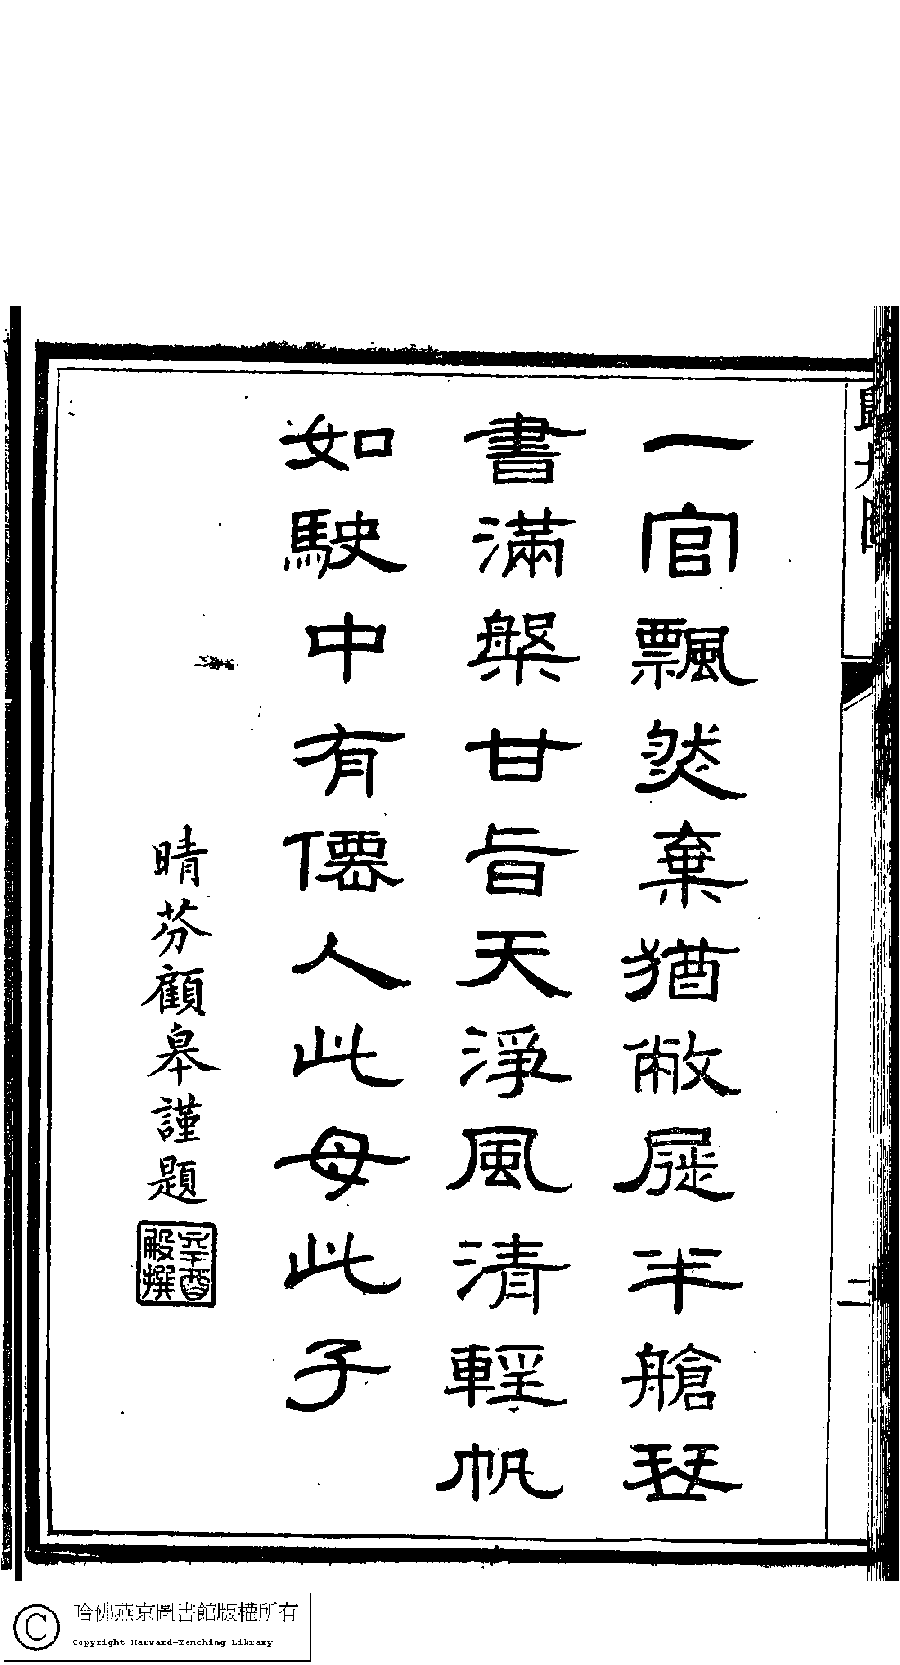 一官飄然棄猶敝屣半艙琴
書滿槃甘旨天淨風清輕帆
如駛中有僊人此母此子
晴芬顧皋謹題
辛酉
殿撰
歸舟圖
二
哈佛燕京圖書館版權所有
Copyright Harvard-Yenching Library